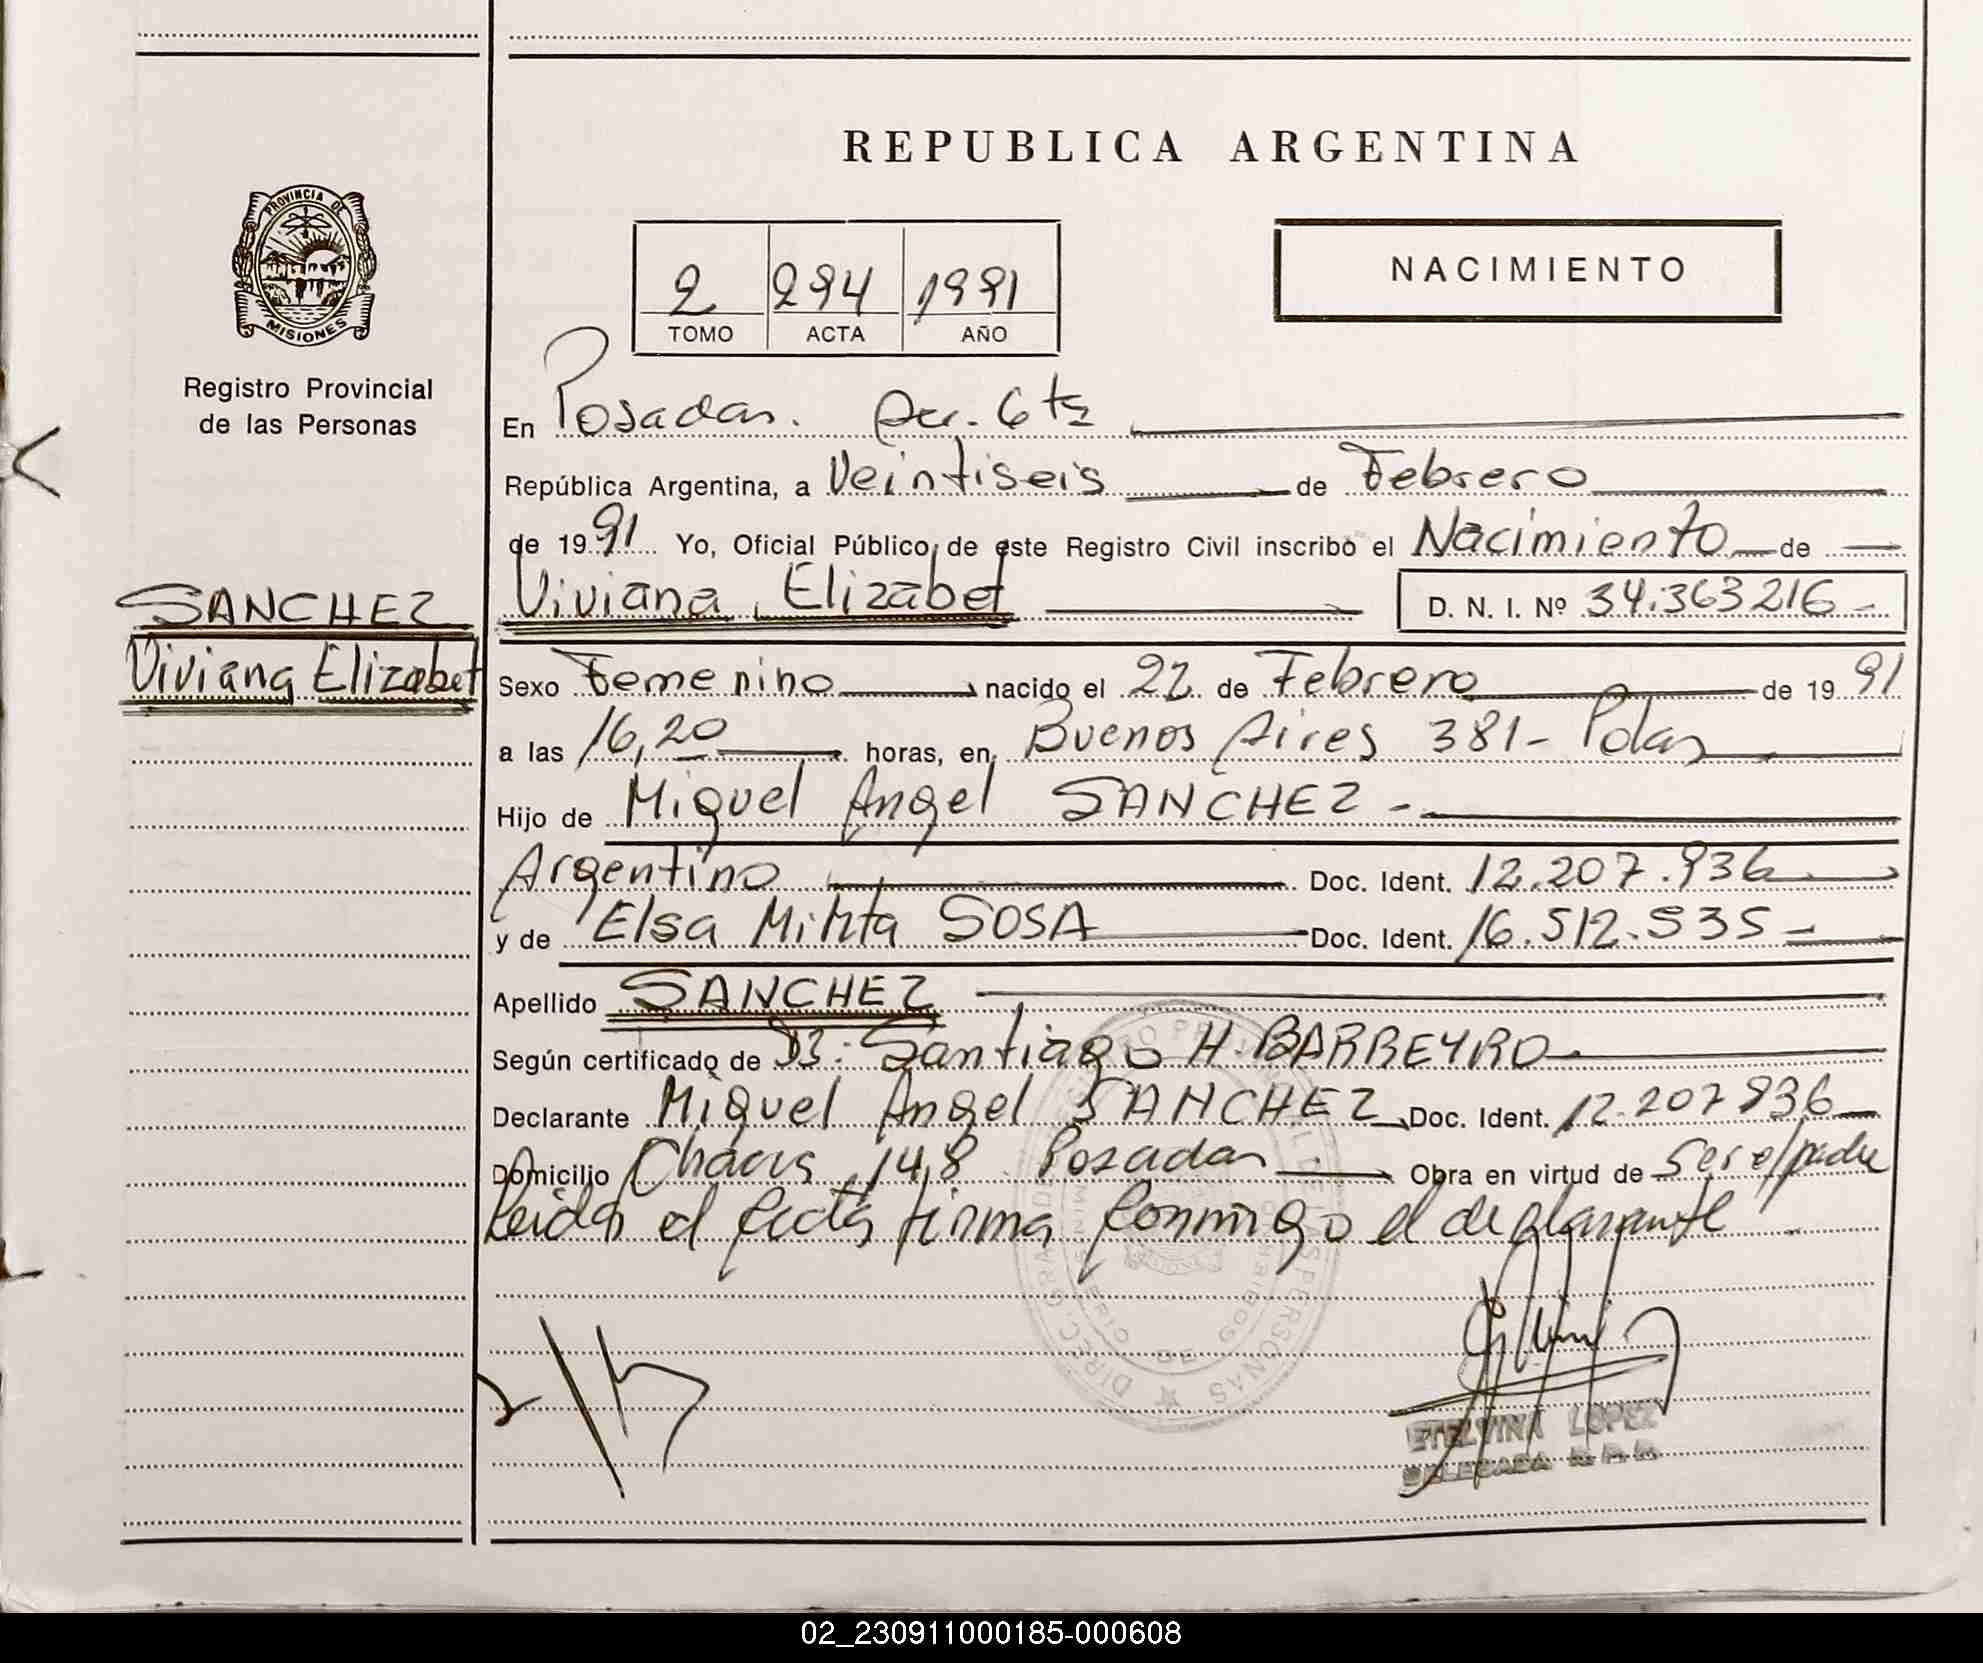 REPUBLICA ARGENTINA
PROVINCIA DE
MISIONES
Registro Provincial
de las Personas
NACIMIENTO
2 294 1991
TOMO ACTA AÑO
En Posadas. 6ta
República Argentina, a Veintiseis de Febrero
de 1991 Yo, Oficial Público, de este Registro Civil inscribo el Nacimiento de
Viviana Elizabet D. N. I. Nº 34.363216
SANCHEZ
Viviana Elizabet
Sexo Femenino nacido el 22 de Febrero de 1991
a las 16,20 horas, en Buenos Aires 381 - Pdas
Hijo de Miguel Angel SANCHEZ -
Argentino Doc. Ident. 12.207.936
y de Elsa Mirta SOSA Doc. Ident. 16.512.535 -
Apellido SANCHEZ
Según certificado de Santiago H. BARREYRO
Declarante Miguel Angel SANCHEZ Doc. Ident. 12.207936
Domicilio 148 Posadas Obra en virtud de ser el padre
Leida el acta firma conmigo el declarante
ETELVINA LOPEZ
DELEGADA R.P.P.
02_230911000185-000608